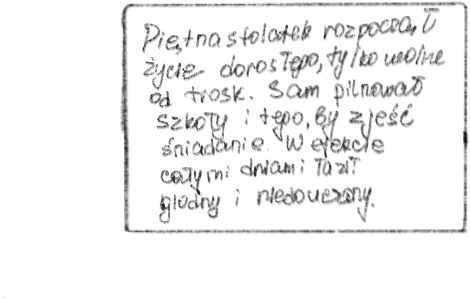 Piętnastolatek rozpoczął
życie dorosłego, tylko wolne
od trosk. Sam pilnował
szkoły i tego, by zjeść
śniadanie. W efekcie
całymi dniami łaził
głodny i niedouczony.